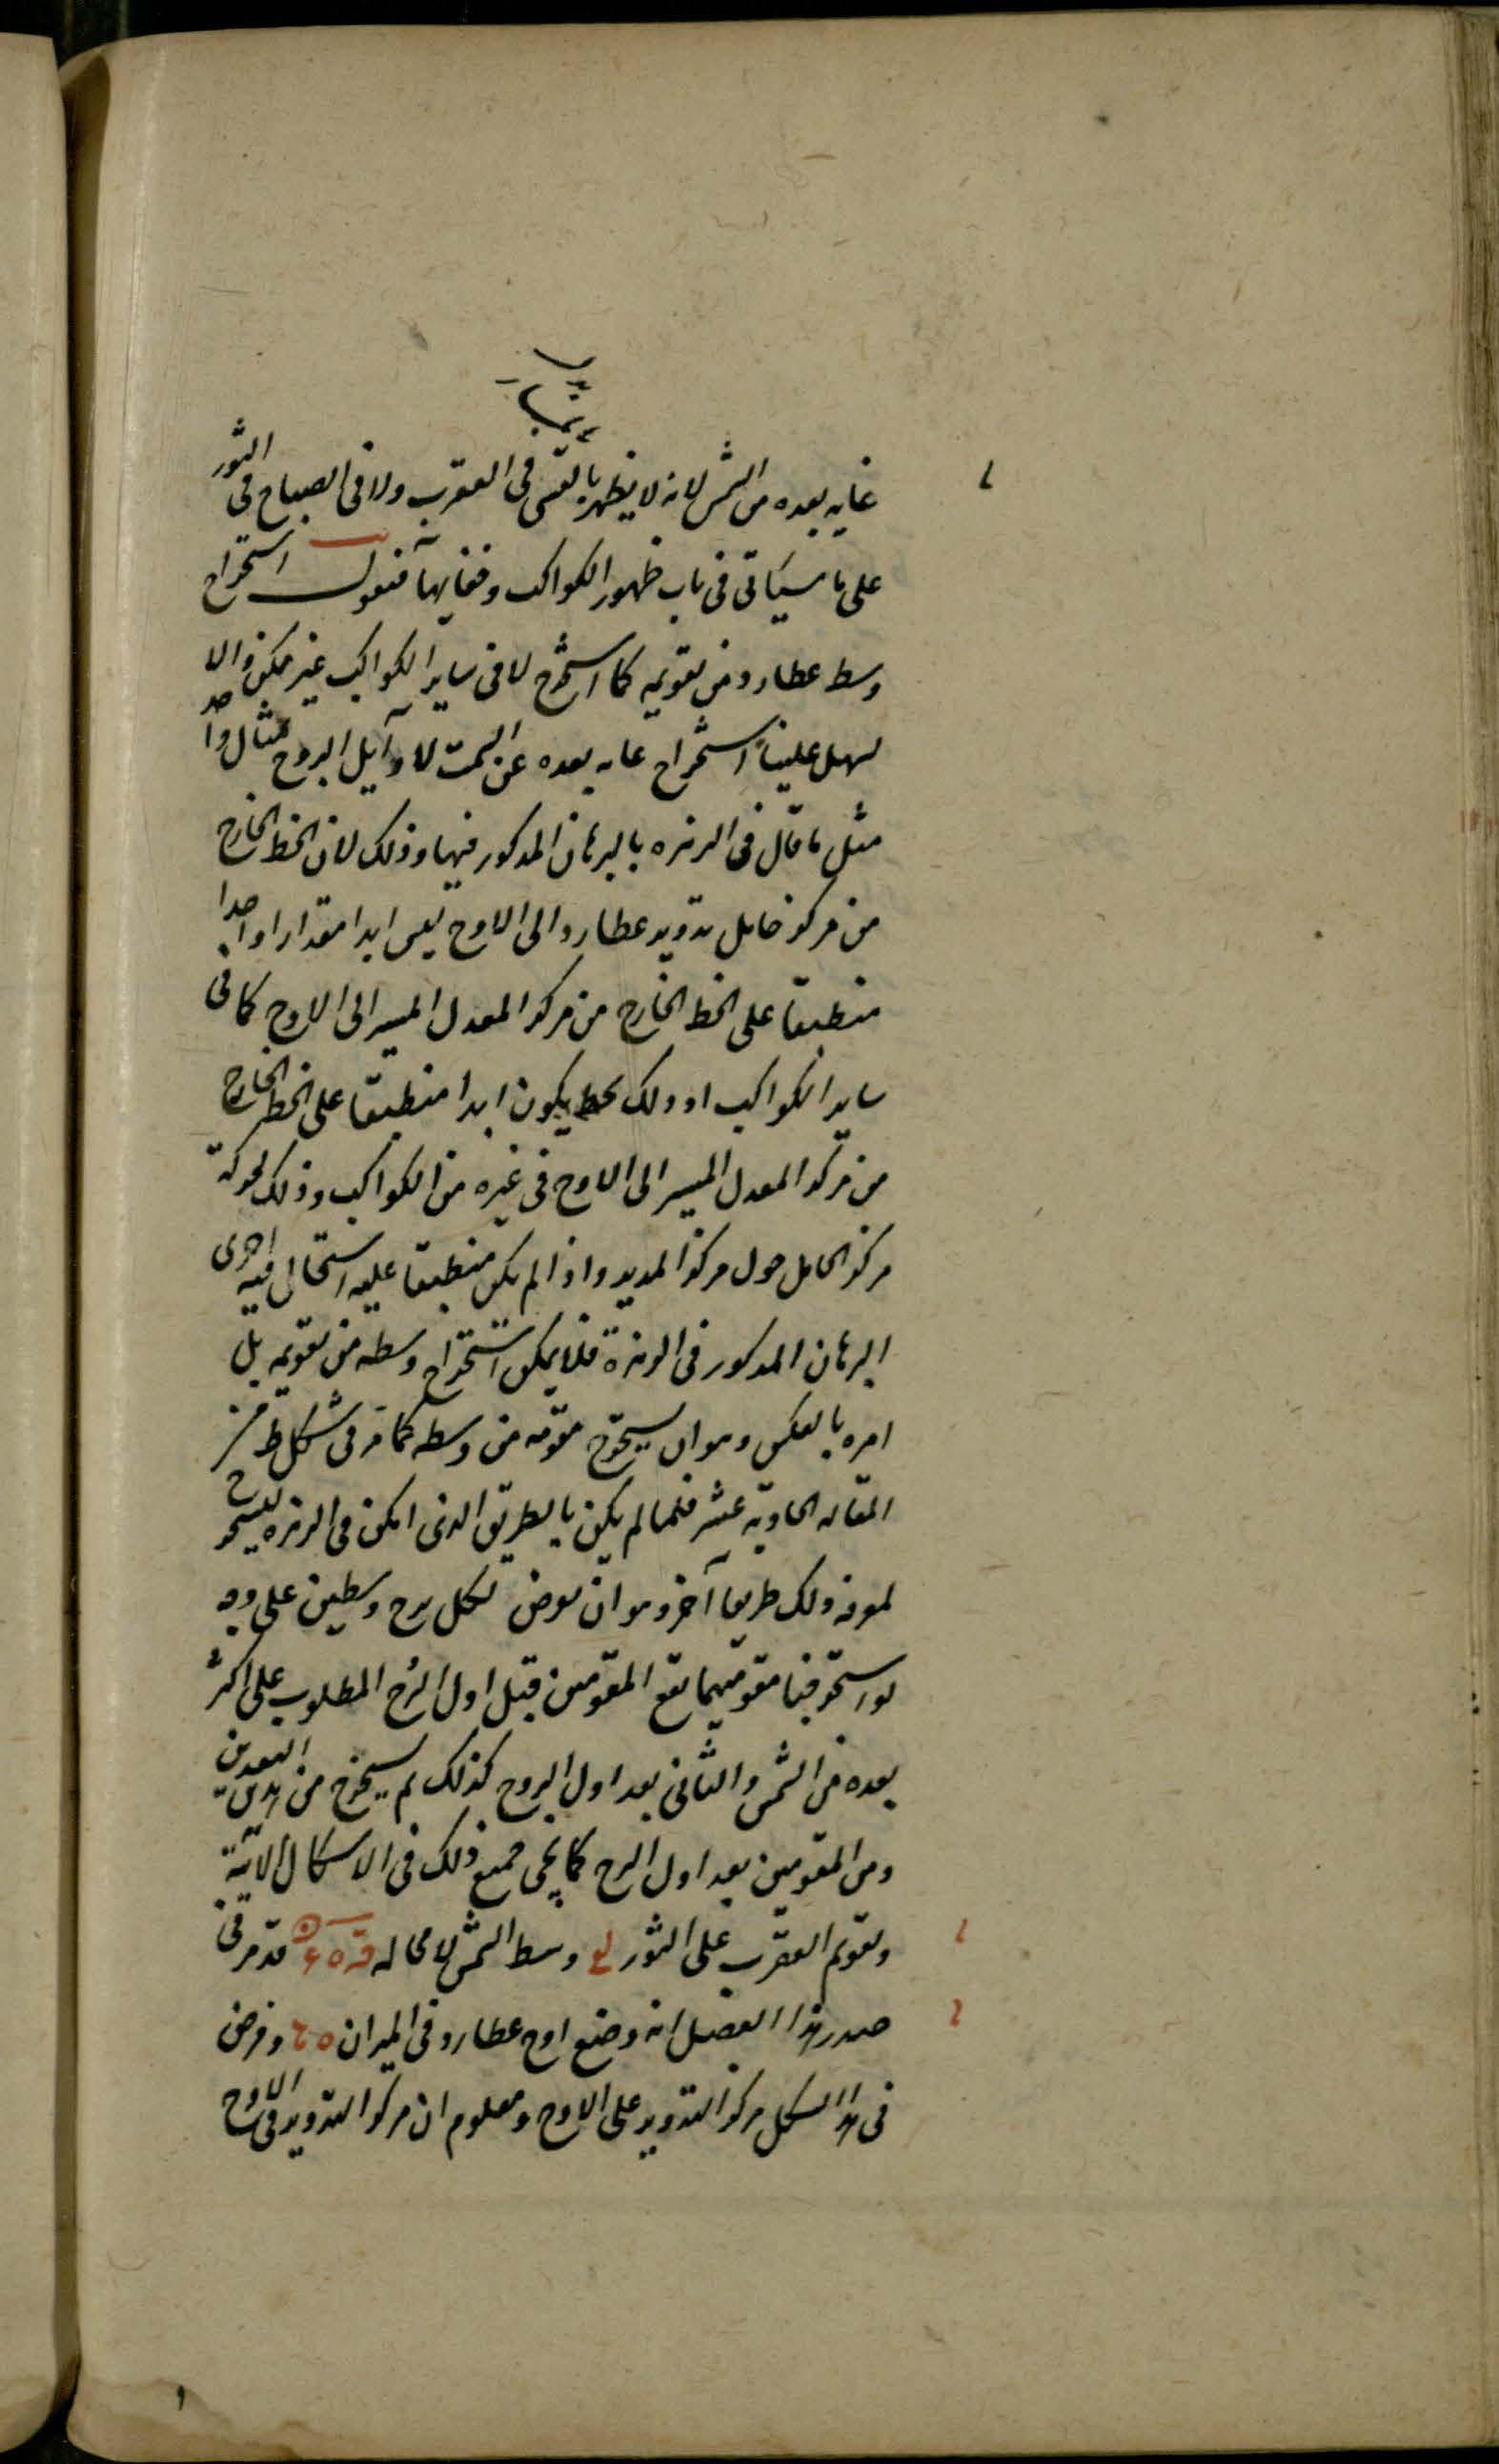 غايه بعده من الشمس لانه لا يظهر بالعشى فى العقرب ولا فى الصباح فى الثور
على ما سيأتى فى باب ظهور الكواكب وخفايها فنقول استخراج
وسط عطارد من تقويمه كما استخرج لا فى ساير الكواكب غير ممكن والا
لسهل علينا استخراج غايه بعده عن السمت لاوايل البروج بمثال واحد
مثل ما قال فى الزهره بالبرهان المذكور فيها وذلك لان الخط الخارج
من مركز حامل تدوير عطارد الى الاوج ليس ابدا مقدارا واحدا
منطبقا على الخط الخارج من مركز المعدل المسير الى الاوج كما فى
ساير الكواكب اذ ذلك الخط يكون ابدا منطبقا على الخط الخارج
من مركز المعدل المسير الى الاوج فى غيره من الكواكب وذلك لحركة
مركز الحامل حول مركز المدير واذا لم يكن منطبقا عليه استحال فيه اجرى
البرهان المذكور فى الزهرة فلا يمكن استخراج وسطه من تقويمه بل
امره بالعكس وهو ان يستخرج مقومه من وسطه كما مر فى شكل ط من
المقاله الحاديه عشر فلما لم يكن بالطريق الذى امكن فى الزهره
لمعرفه ذلك طريقا آخر وهو ان نفرض لكل برج وسطين على وجه
لو استخرجنا مقوميهما تقع المقومين قبل اول البرج المطلوب على اكثر
بعده من الشمس والثانى بعد اول البروج كذلك ثم يستخرج من هذين البعدين
ومن المقومين بعد اول البرج كما يجى جميع ذلك فى الاشكال الاتية
وتقويم العقرب على الثور وسط الشمس لا محاله قد مر فى
صدر هذا الفصل انه وضع اوج عطارد فى الميزان وفرض
فى هذا الشكل مركز التدوير على الاوج ومعلوم ان مركز التدوير فى الاوج